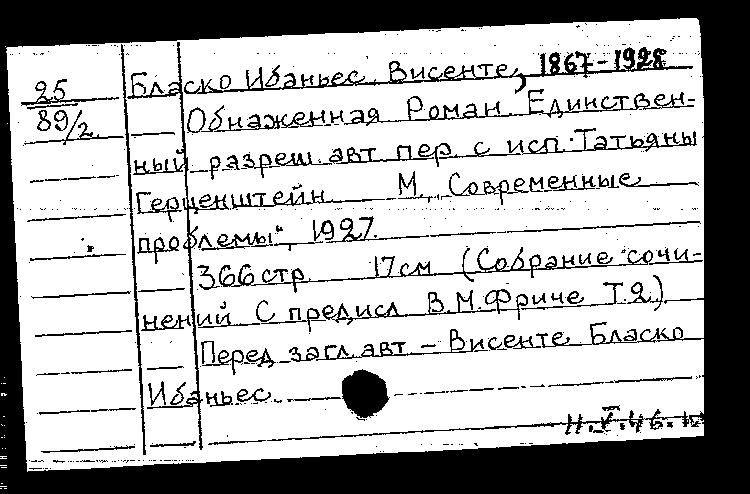 25
89/2
Бласко Ибаньес, Висенте, 1867-1928
Обнаженная Роман Единствен-
ный разреш. авт. пер. с исп. Татьяны
Герценштейн М., Современные
проблемы", 1927.
366 стр. 17 см (Собрание сочи-
нений С предисл. В.М.Фриче Т.2.)
Перед загл. авт – Висенте Бласко
Ибаньес.
11.V.46.